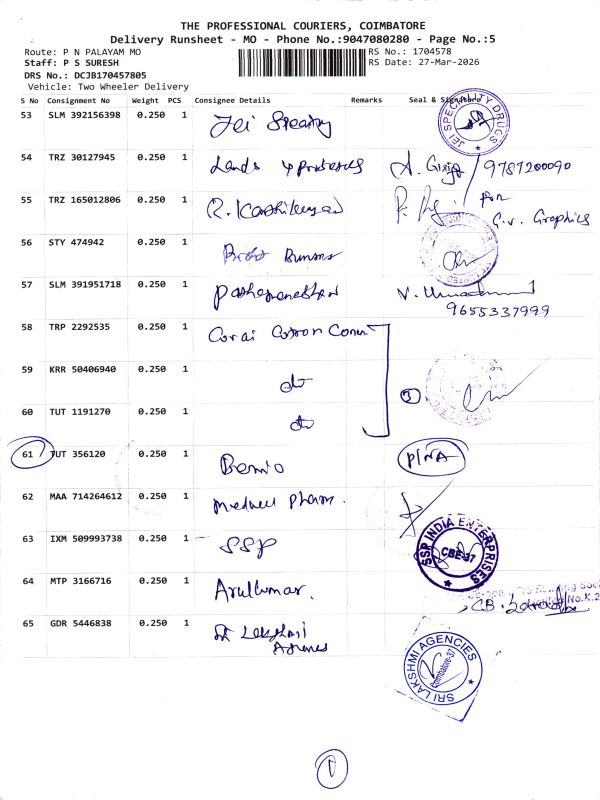 THE PROFESSIONAL COURIERS, COIMBATORE
Delivery Runsheet - MO - Phone No.:9047080280 - Page No.:5
Route: P N PALAYAM MO
RS No.: 1704578
Staff: P S SURESH
RS Date: 27-Mar-2026
DRS No.: DCJB170457805
Vehicle: Two Wheeler Delivery
S No Consignment No Weight PCS Consignee Details Remarks Seal & Signature
53 SLM 392156398 0.250 1 Jei
JEI SPECIALITY DRUGS
54 TRZ 30127945 0.250 1 Lands 9787200090
55 TRZ 165012806 0.250 1 R. Karthikeyan for
G.V. Graphics
56 STY 474942 0.250 1
57 SLM 391951718 0.250 1 V.
9655337999
58 TRP 2292535 0.250 1 Corai Cotton
59 KRR 50406940 0.250 1 do
3
60 TUT 1191270 0.250 1 do
61 TUT 356120 0.250 1 P/NA
62 MAA 714264612 0.250 1 Medwell Pharm.
63 IXM 509993738 0.250 1 SSP
SSP INDIA ENTERPRISES
CBE-37
64 MTP 3166716 0.250 1 Arulkumar.
65 GDR 5446838 0.250 1 Sri Lakshmi
SRI LAKSHMI AGENCIES
Coimbatore-37
1